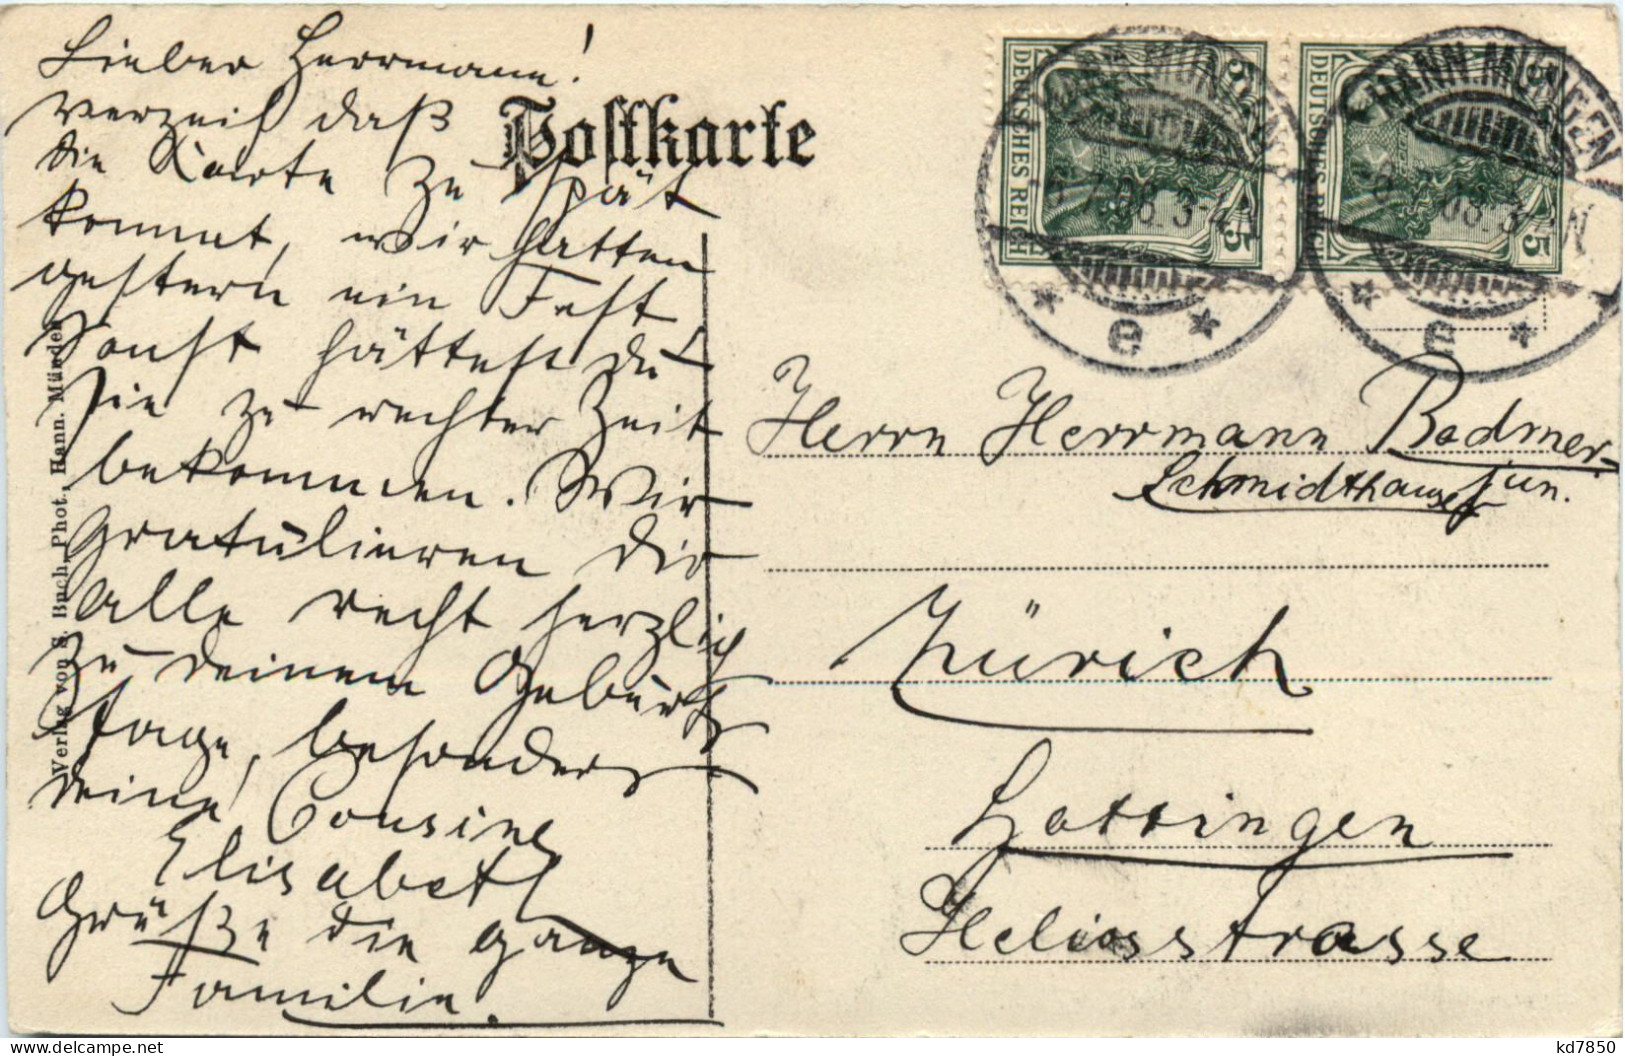 Lieber Herrmann!
verzeih daß
die Karte zu spät
kommt, wir hatten
gestern ein Fest
sonst hättest du
sie zu rechter Zeit
bekommen. Wir
gratulieren dir
alle recht herzlich
zu deinem Geburts
tage, besonders
deine Cousine
Elisabeth
Grüße die ganze
Familie.
Postkarte
Verlag von S. Buch, Phot., Hann. Münden
DEUTSCHES REICH
5
5
DEUTSCHES REICH
5
5
HANN. MÜNDEN
6.7.08.3-4N
* e *
HANN. MÜNDEN
08.3-4N
* e *
Herrn Herrmann Bodmer-
Schmidthauser jun.
Zürich
Hottingen
Heliosstrasse
kd7850